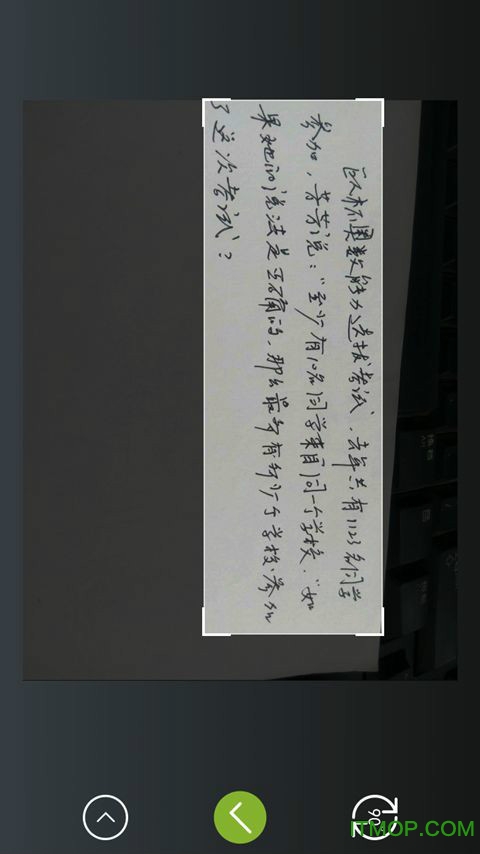 欧杯奥数能力选拔考试，去年共有1123名同学
参加，芳芳说：“至少有10名同学来自同一个学校，”如
果她的说法是正确的，那么最多有多少个学校参加
了这次考试？
90
ITMOP.COM